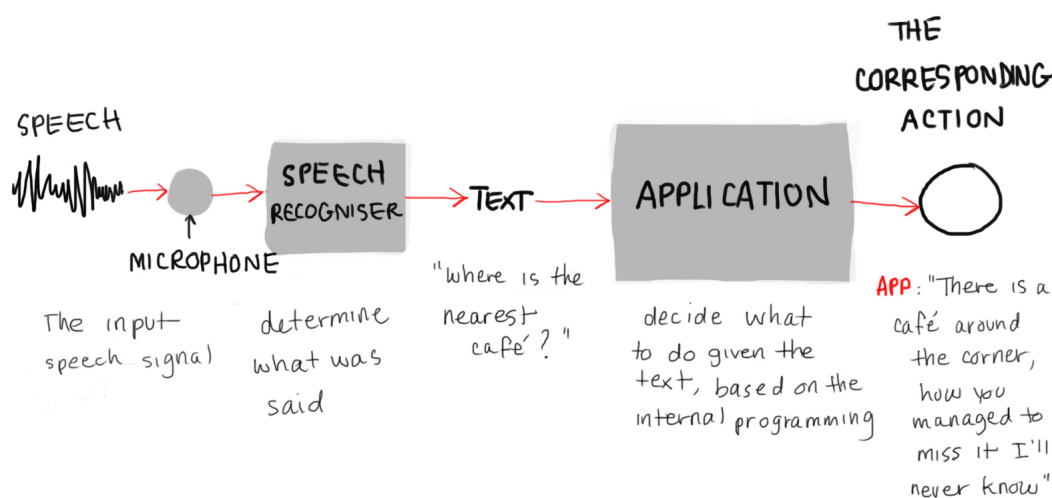 SPEECH
MICROPHONE
The input
speech signal
SPEECH
RECOGNISER
determine
what was
said
TEXT
"where is the
nearest
café?"
APPLICATION
decide what
to do given the
text, based on the
internal programming
THE
CORRESPONDING
ACTION
APP: "There is a
café around
the corner,
how you
managed to
miss it I'll
never know"